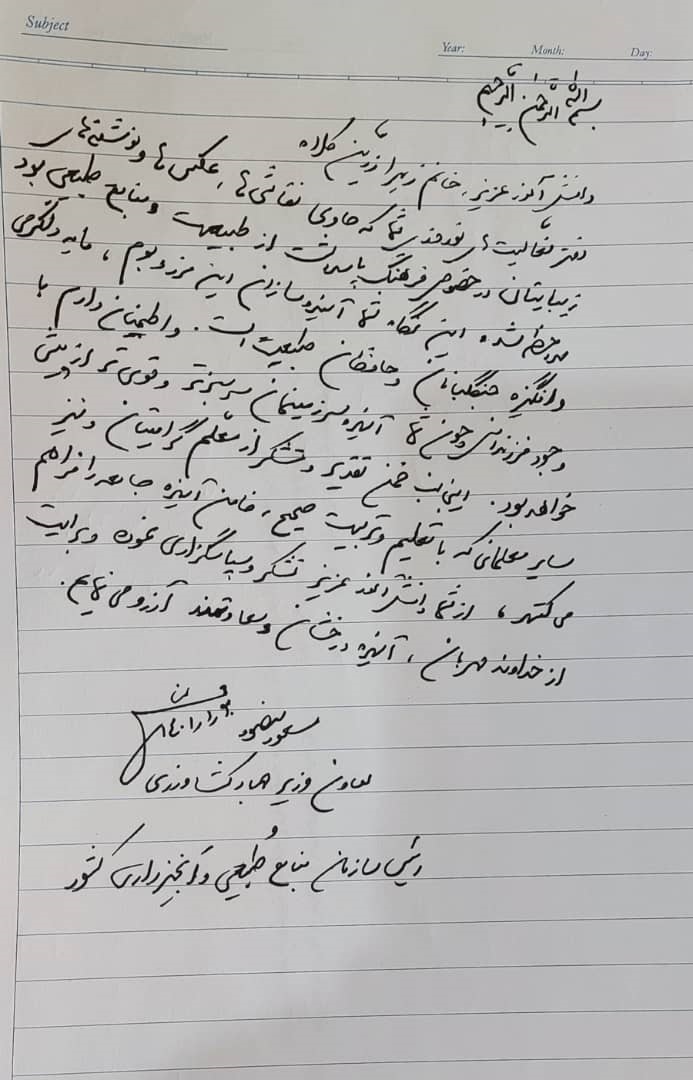 Subject
Year: Month: Day:
بسم الله الرحمن الرحیم
دانش آموز عزیز، خانم زهرا زرین کلاه
دفتر فعالیت‌های شما که حاوی نقاشی‌ها، عکس‌ها و نوشته‌های
زیبایتان در خصوص فرهنگ پاسداشت از طبیعت و منابع طبیعی بود
ملاحظه شد. این نگاه شما آینده‌سازان این مرز و بوم، مایه دلگرمی
و انگیزه جنگلبانان و حافظان طبیعت است. و اطمینان دارم با
وجود فرزندانی چون شما آینده سرزمینمان سرسبزتر و قوی‌تر از پیش
خواهد بود. اینجانب ضمن تقدیر و تشکر از معلم گرامیتان و نیز
سایر معلمانی که با تعلیم و تربیت صحیح، ضامن آینده جامعه را فراهم
می‌کنند، از شما دانش آموز عزیز تشکر و سپاسگزاری نموده و برایت
از خداوند مهربان، آینده درخشان و سعادتمند آرزو می‌نمایم.
مسعود منصور
معاون وزیر جهاد کشاورزی
رئیس سازمان منابع طبیعی و آبخیزداری کشور